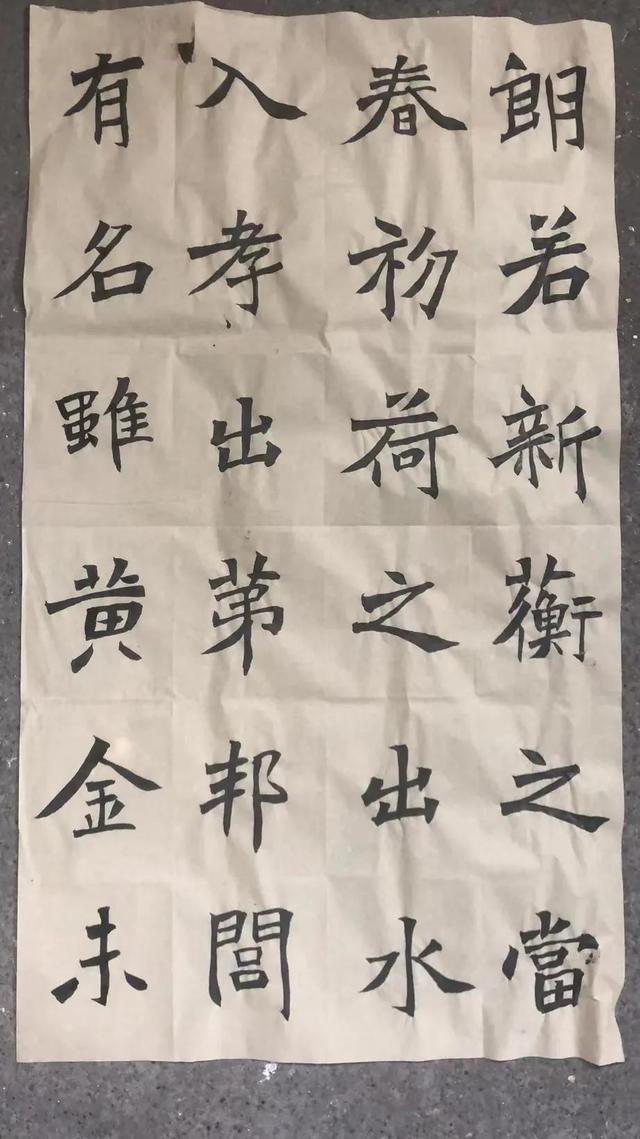 朗若新蘅之當
春初荷之出水
入孝出苐邦閭
有名雖黄金未